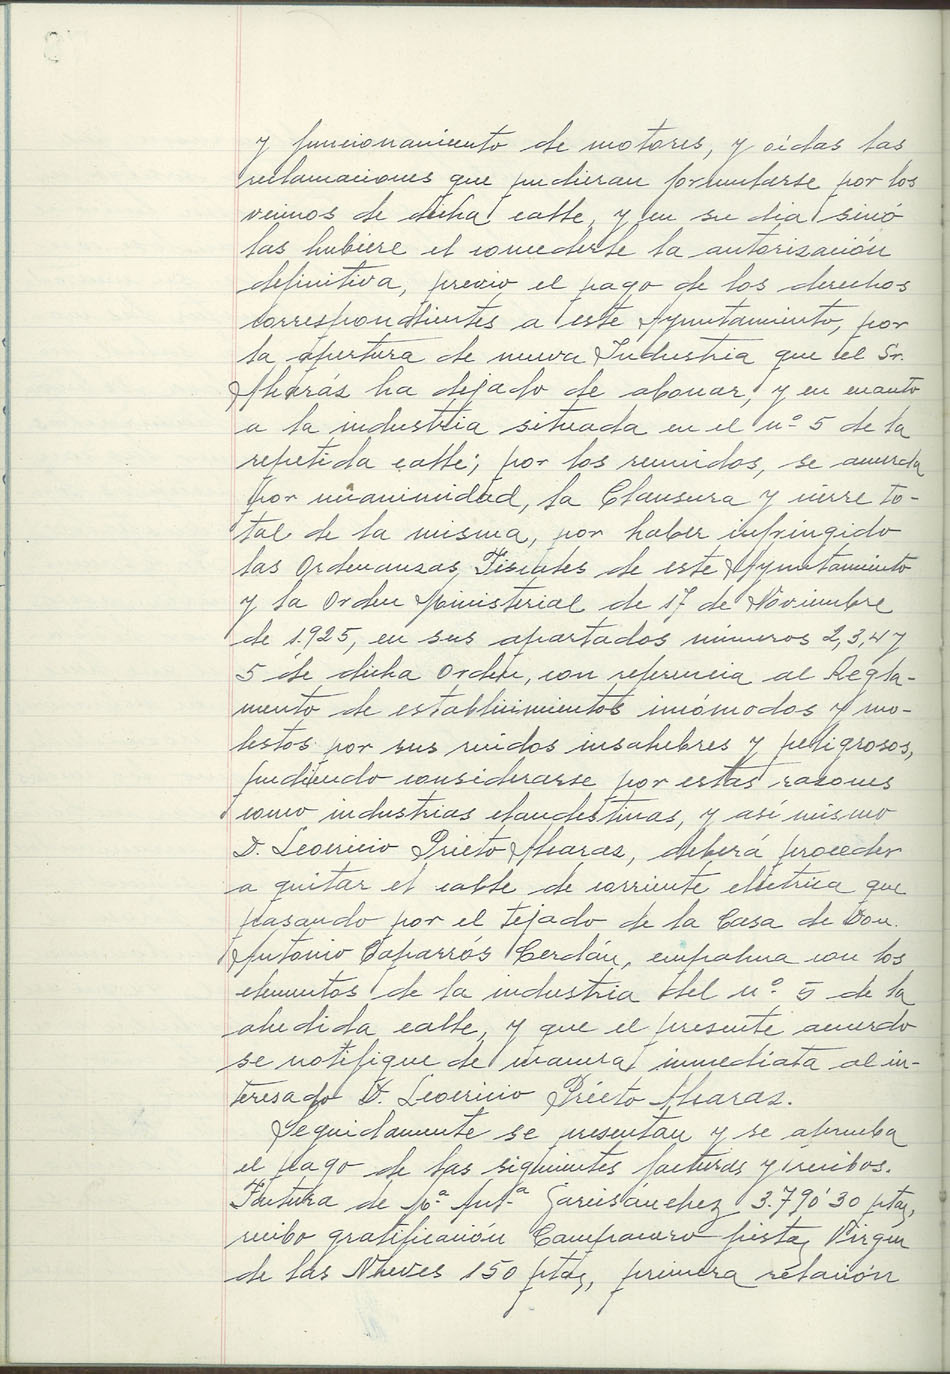 y funcionamiento de motores, y oídas las
reclamaciones que pudieran formularse por los
vecinos de dicha calle, y en su dia sinó
las hubiere el concederle la autorización
definitiva, previo el pago de los derechos
correspondientes a este Ayuntamiento, por
la apertura de nueva Industria que el Sr.
Alcaráz ha dejado de abonar, y en cuanto
a la industria situada en el nº 5 de la
repetida calle; por los reunidos, se acuerda
por unanimidad, la Clausura y cierre to-
tal de la misma, por haber infringido
las Ordenanzas Fiscales de este Ayuntamiento
y la Orden Ministerial de 17 de Noviembre
de 1.925, en sus apartados números 2, 3, 4 y
5 de dicha Orden, con referencia al Regla-
mento de establicimientos incómodos y mo-
lestos por sus ruidos insalubres y peligrosos,
pudiendo considerarse por estas razones
como industrias clandestinas, y así mismo
D. Leoricio Prieto Alcaraz, deberá proceder
a quitar el cable de corriente eléctrica que
pasando por el tejado de la Casa de Don
Antonio Caparrós Cerdán, empalma con los
elementos de la industria del nº 5 de la
aludida calle, y que el presente acuerdo
se notifique de manera inmediata al in-
teresado D. Leoricio Prieto Alcaraz.
Seguidamente se presentan y se aprueba
el pago de las siguientes facturas y recibos.
Factura de Mª Antª Garcisánchez 3.790'30 ptas,
recibo gratificación Campanero fiestas Virgen
de las Nieves 150 ptas, primera relación